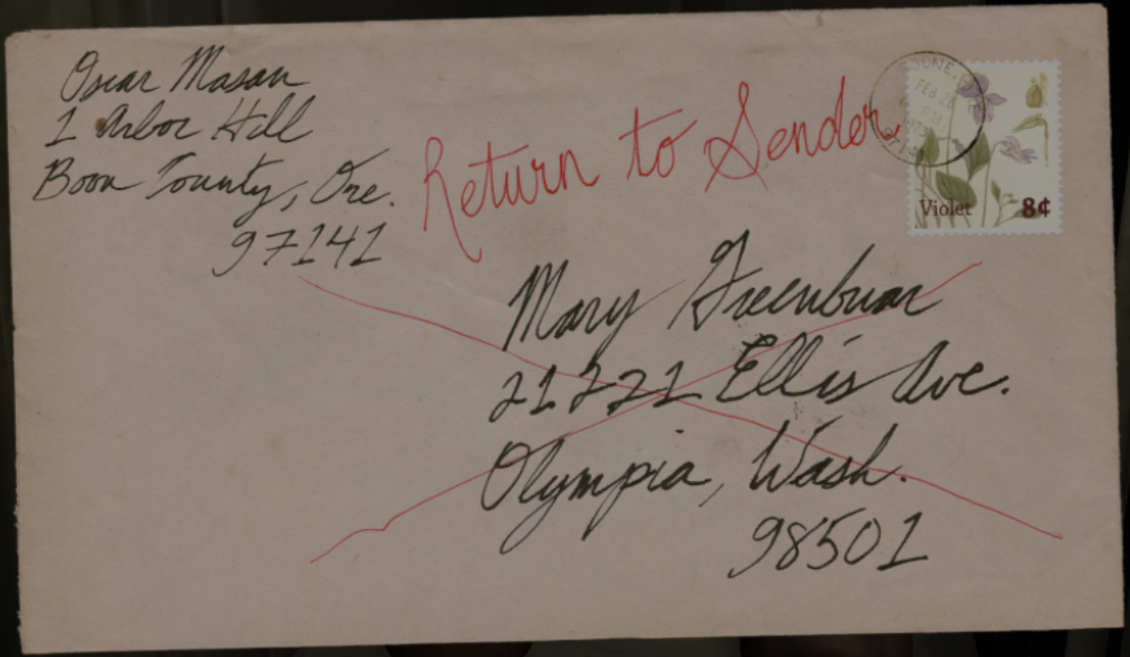 Oscar Mason
1 Arbor Hill
Boon County, Ore.
97141
Return to Sender
FEB 28
1973
97141
Violet 8¢
Mary Greenbriar
21221 Ellis Ave.
Olympia, Wash.
98501